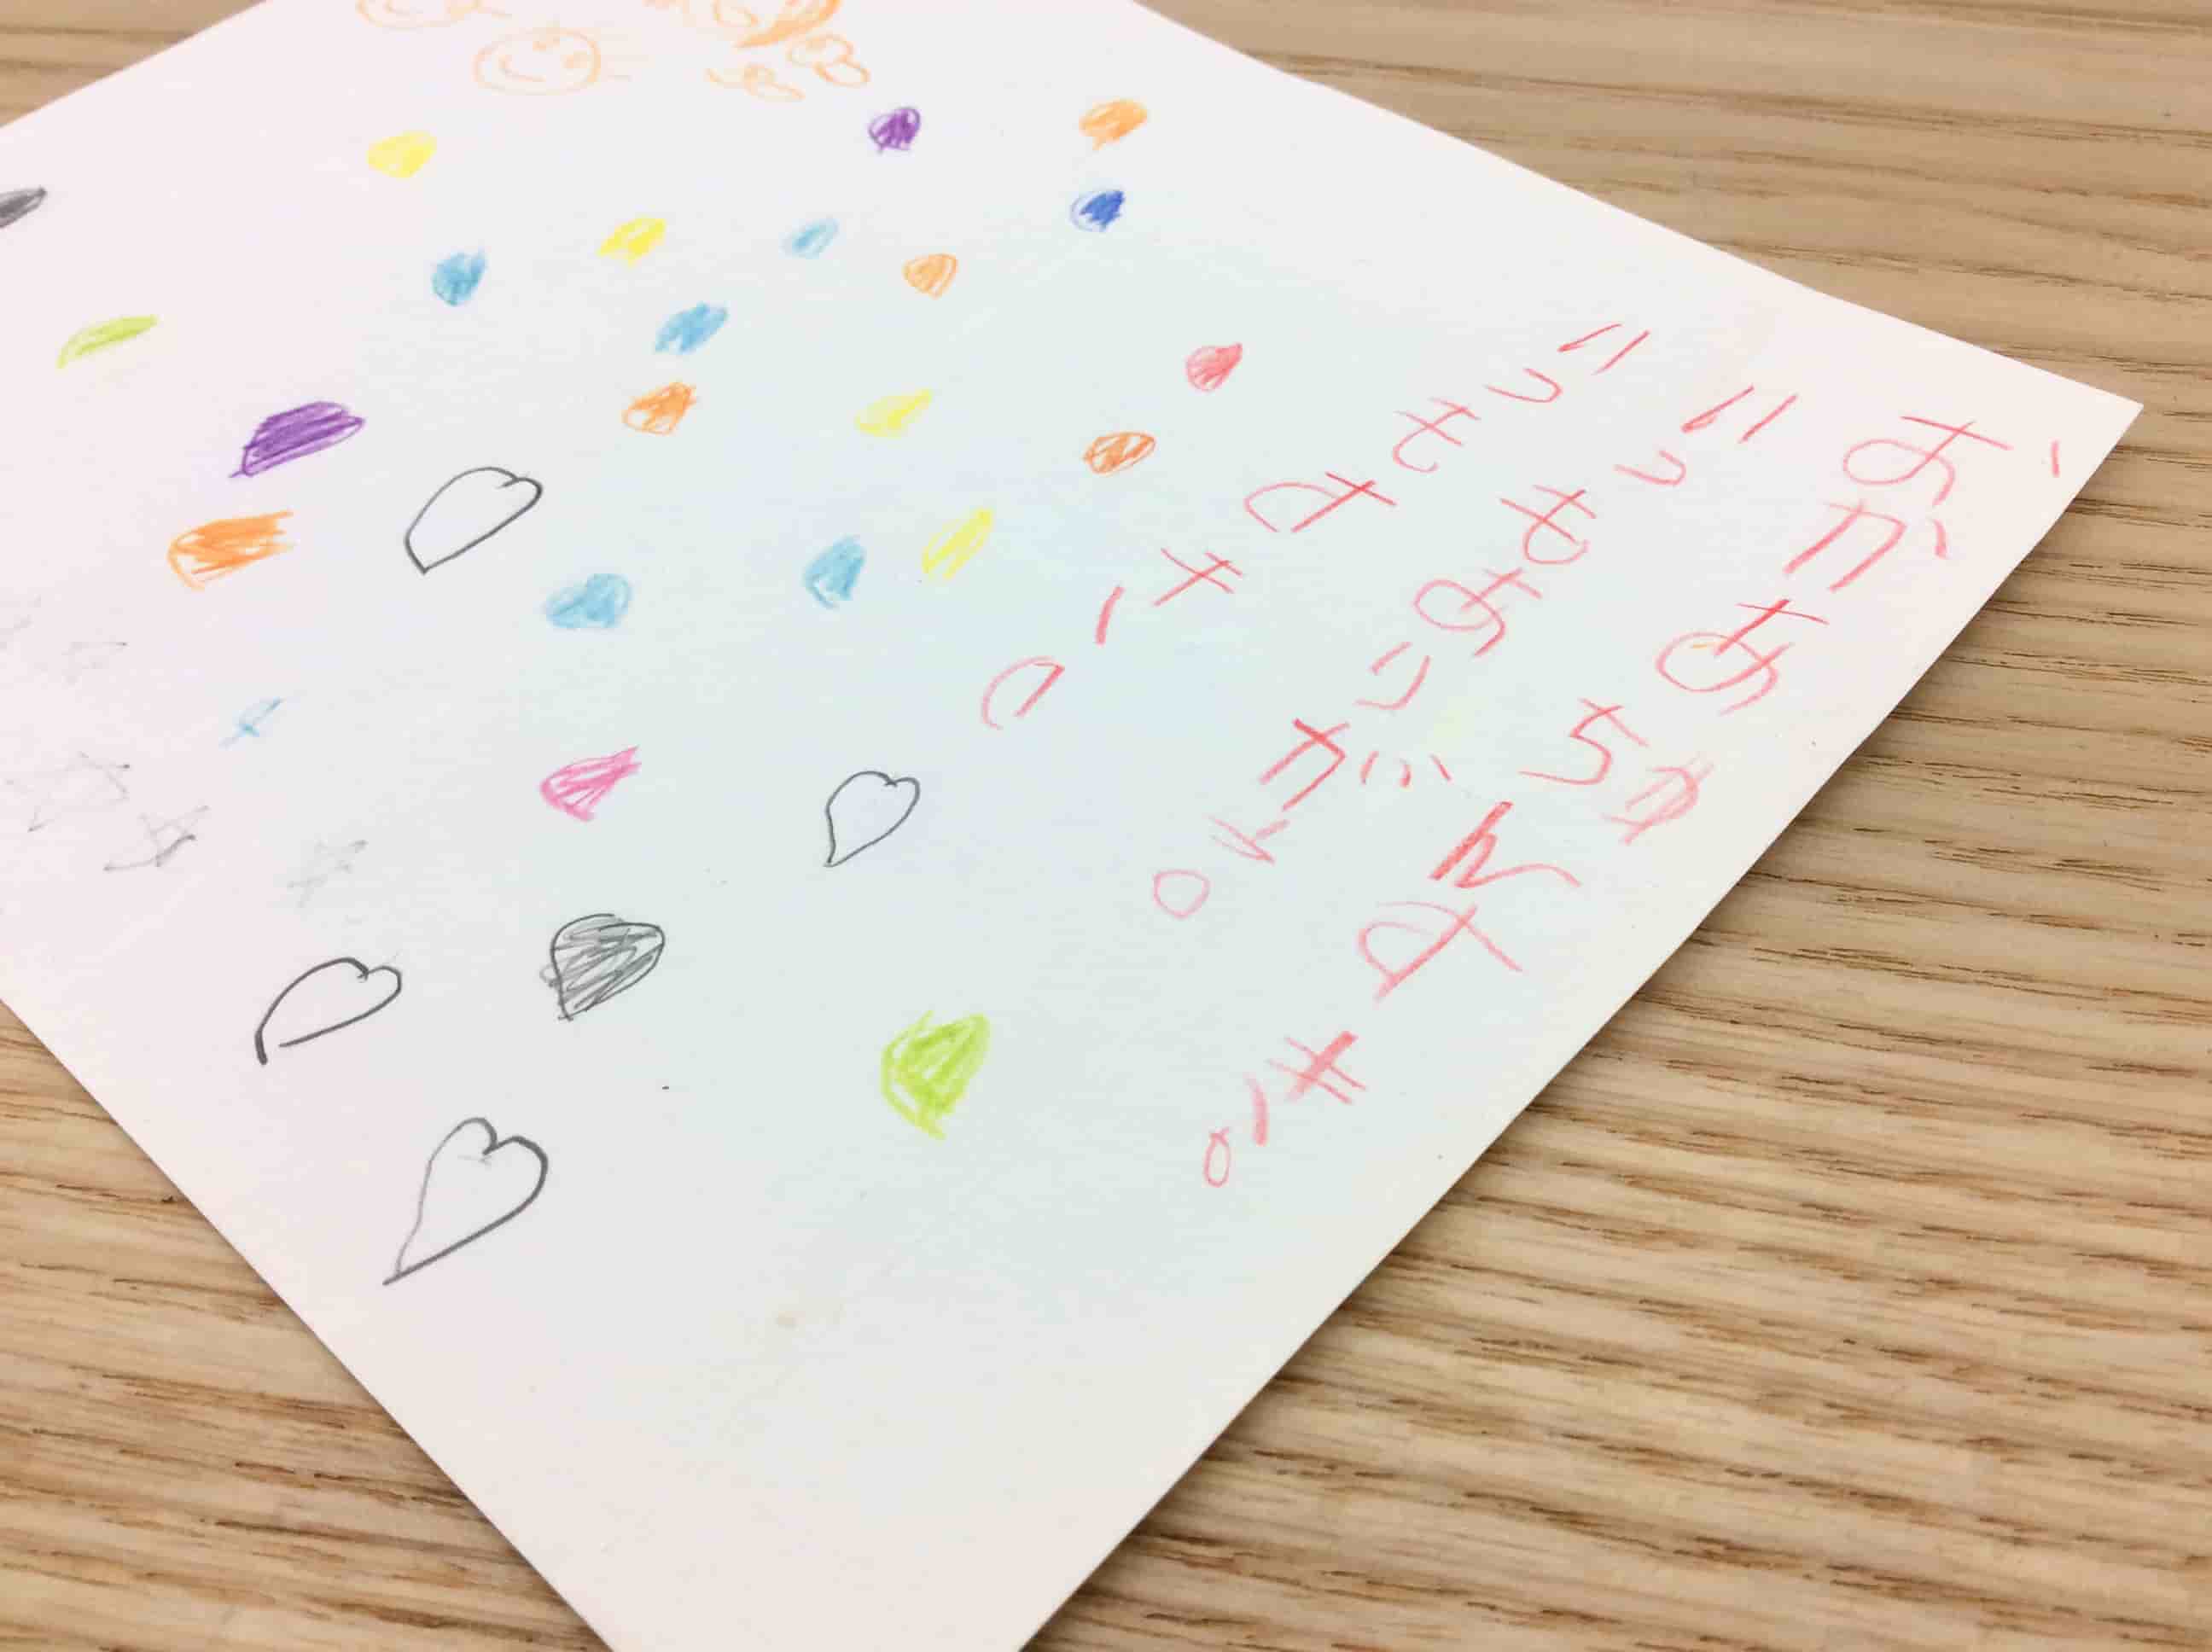 おかあちゃんすき。
いつもありがと。
いつもすき。